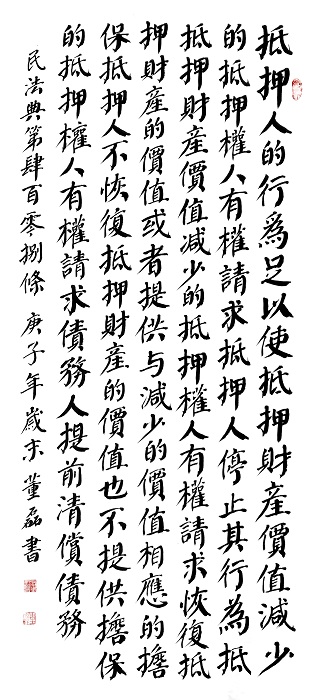 抵押人的行為足以使抵押財產價值減少
的抵押權人有權請求抵押人停止其行為抵
抵押財產價值減少的抵押權人有權請求恢復抵
押財產的價值或者提供与減少的價值相應的擔
保抵押人不恢復抵押財產的價值也不提供擔保
的抵押權人有權請求債務人提前清償債務
民法典第肆百零捌條 庚子年歲末 董磊書